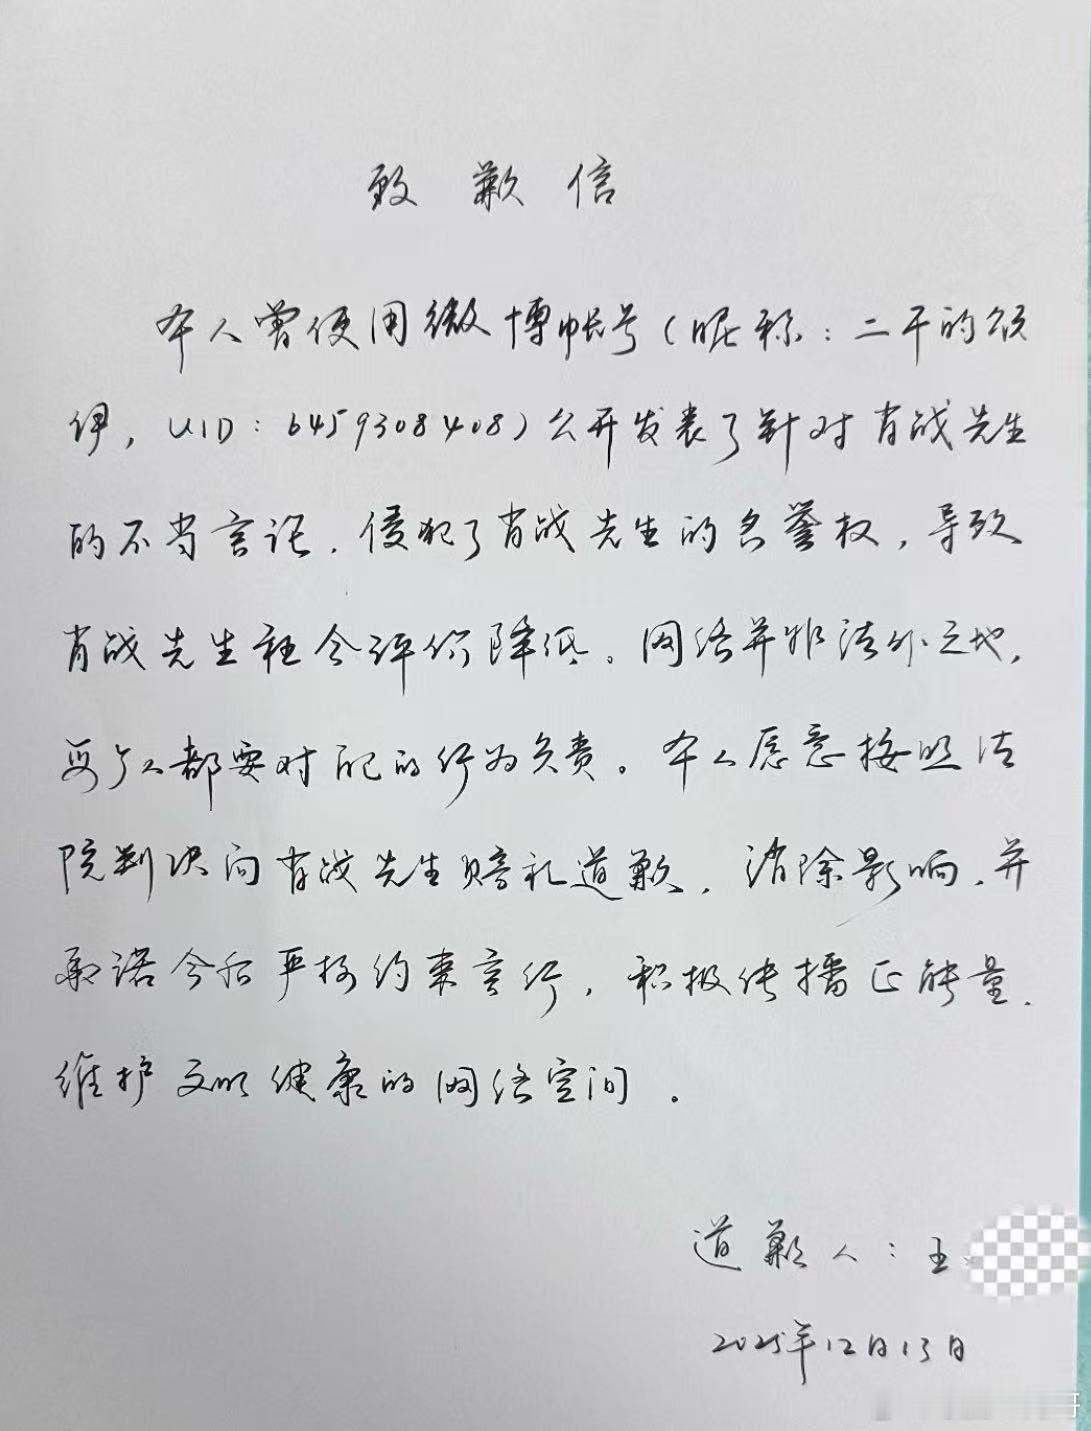 致歉信
本人曾使用微博帐号(昵称:二千的颂
伊,UID:6459308408)公开发表了针对肖战先生
的不当言论,侵犯了肖战先生的名誉权,导致
肖战先生社会评价降低。网络并非法外之地,
每个人都要对自己的行为负责。本人愿意按照法
院判决向肖战先生赔礼道歉,消除影响,并
承诺今后严格约束言行,积极传播正能量,
维护文明健康的网络空间。
道歉人:王
2025年12月13日